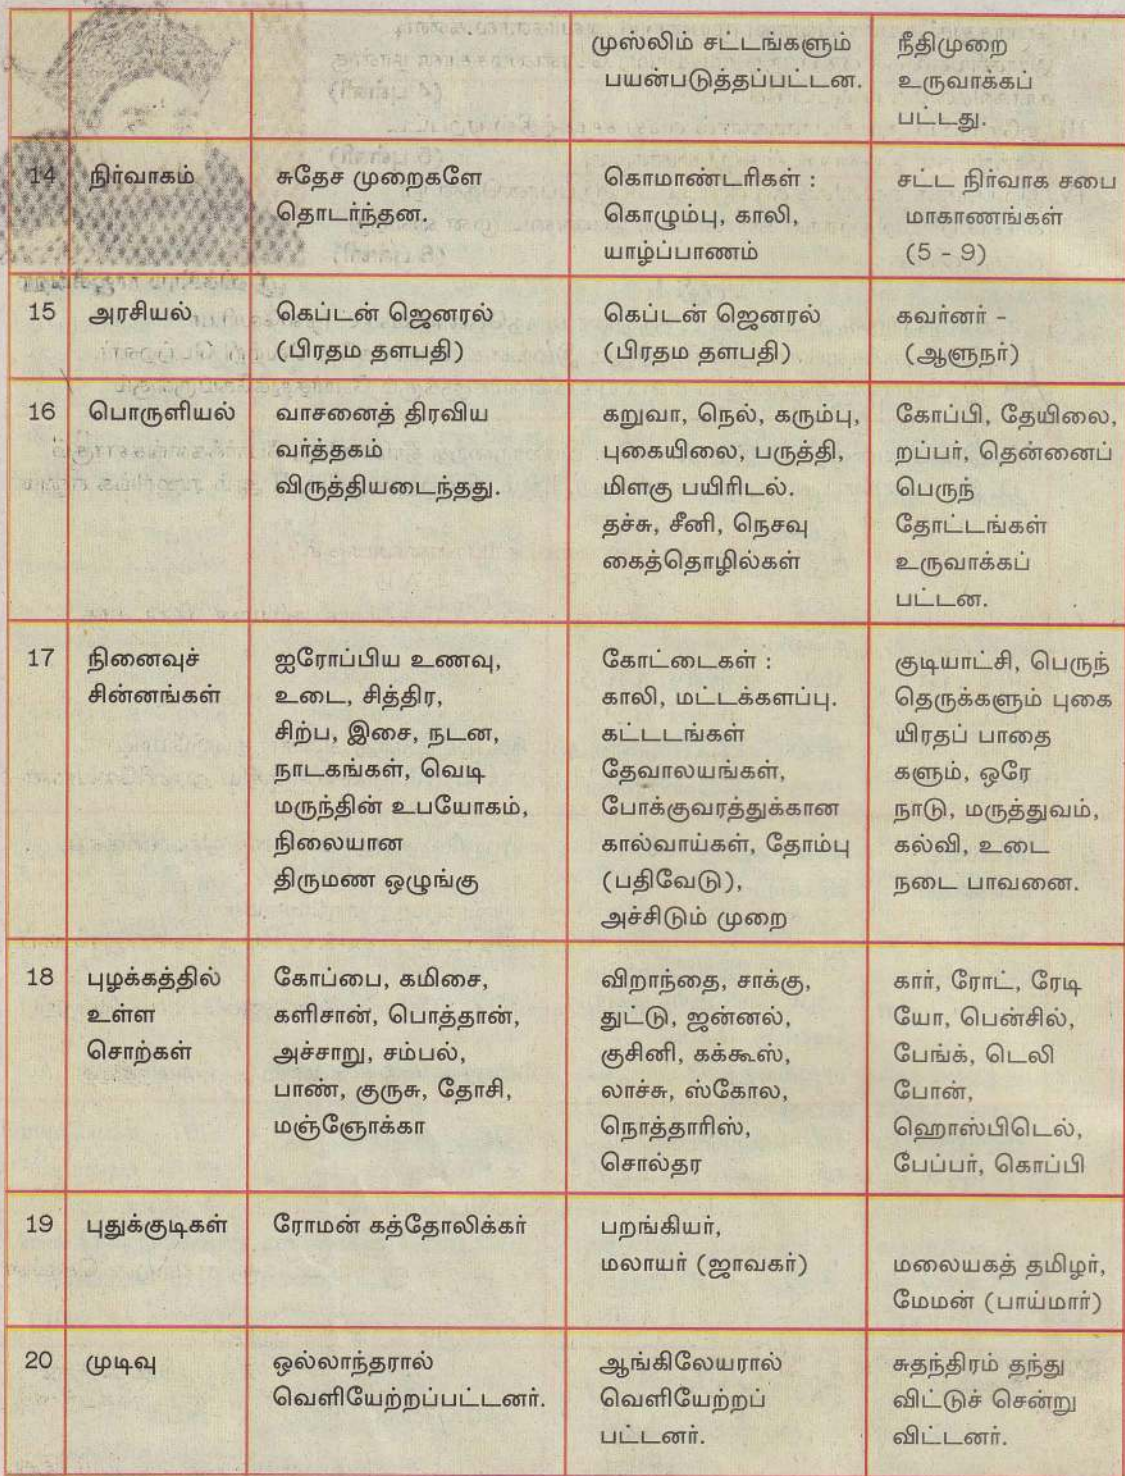 முஸ்லிம் சட்டங்களும்
பயன்படுத்தப்பட்டன.
நீதிமுறை
உருவாக்கப்
பட்டது.
14
நிர்வாகம்
சுதேச முறைகளே
தொடர்ந்தன.
கொமாண்டரிகள் :
கொழும்பு, காலி,
யாழ்ப்பாணம்
சட்ட நிர்வாக சபை
மாகாணங்கள்
(5 - 9)
15
அரசியல்
கெப்டன் ஜெனரல்
(பிரதம தளபதி)
கெப்டன் ஜெனரல்
(பிரதம தளபதி)
கவர்னர் -
(ஆளுநர்)
16
பொருளியல்
வாசனைத் திரவிய
வர்த்தகம்
விருத்தியடைந்தது.
கறுவா, நெல், கரும்பு,
புகையிலை, பருத்தி,
மிளகு பயிரிடல்.
தச்சு, சீனி, நெசவு
கைத்தொழில்கள்
கோப்பி, தேயிலை,
றப்பர், தென்னைப்
பெருந்
தோட்டங்கள்
உருவாக்கப்
பட்டன.
17
நினைவுச்
சின்னங்கள்
ஐரோப்பிய உணவு,
உடை, சித்திர,
சிற்ப, இசை, நடன,
நாடகங்கள், வெடி
மருந்தின் உபயோகம்,
நிலையான
திருமண ஒழுங்கு
கோட்டைகள் :
காலி, மட்டக்களப்பு.
கட்டடங்கள்
தேவாலயங்கள்,
போக்குவரத்துக்கான
கால்வாய்கள், தோம்பு
(பதிவேடு),
அச்சிடும் முறை
குடியாட்சி, பெருந்
தெருக்களும் புகை
யிரதப் பாதை
களும், ஒரே
நாடு, மருத்துவம்,
கல்வி, உடை
நடை பாவனை.
18
புழக்கத்தில்
உள்ள
சொற்கள்
கோப்பை, கமிசை,
களிசான், பொத்தான்,
அச்சாறு, சம்பல்,
பாண், குருசு, தோசி,
மஞ்ஞோக்கா
விறாந்தை, சாக்கு,
துட்டு, ஜன்னல்,
குசினி, கக்கூஸ்,
லாச்சு, ஸ்கோல,
நொத்தாரிஸ்,
சொல்தர
கார், ரோட், ரேடி
யோ, பென்சில்,
பேங்க், டெலி
போன்,
ஹொஸ்பிடெல்,
பேப்பர், கொப்பி
19
புதுக்குடிகள்
ரோமன் கத்தோலிக்கர்
பறங்கியர்,
மலாயர் (ஜாவகர்)
மலையகத் தமிழர்,
மேமன் (பாய்மார்)
20
முடிவு
ஒல்லாந்தரால்
வெளியேற்றப்பட்டனர்.
ஆங்கிலேயரால்
வெளியேற்றப்
பட்டனர்.
சுதந்திரம் தந்து
விட்டுச் சென்று
விட்டனர்.